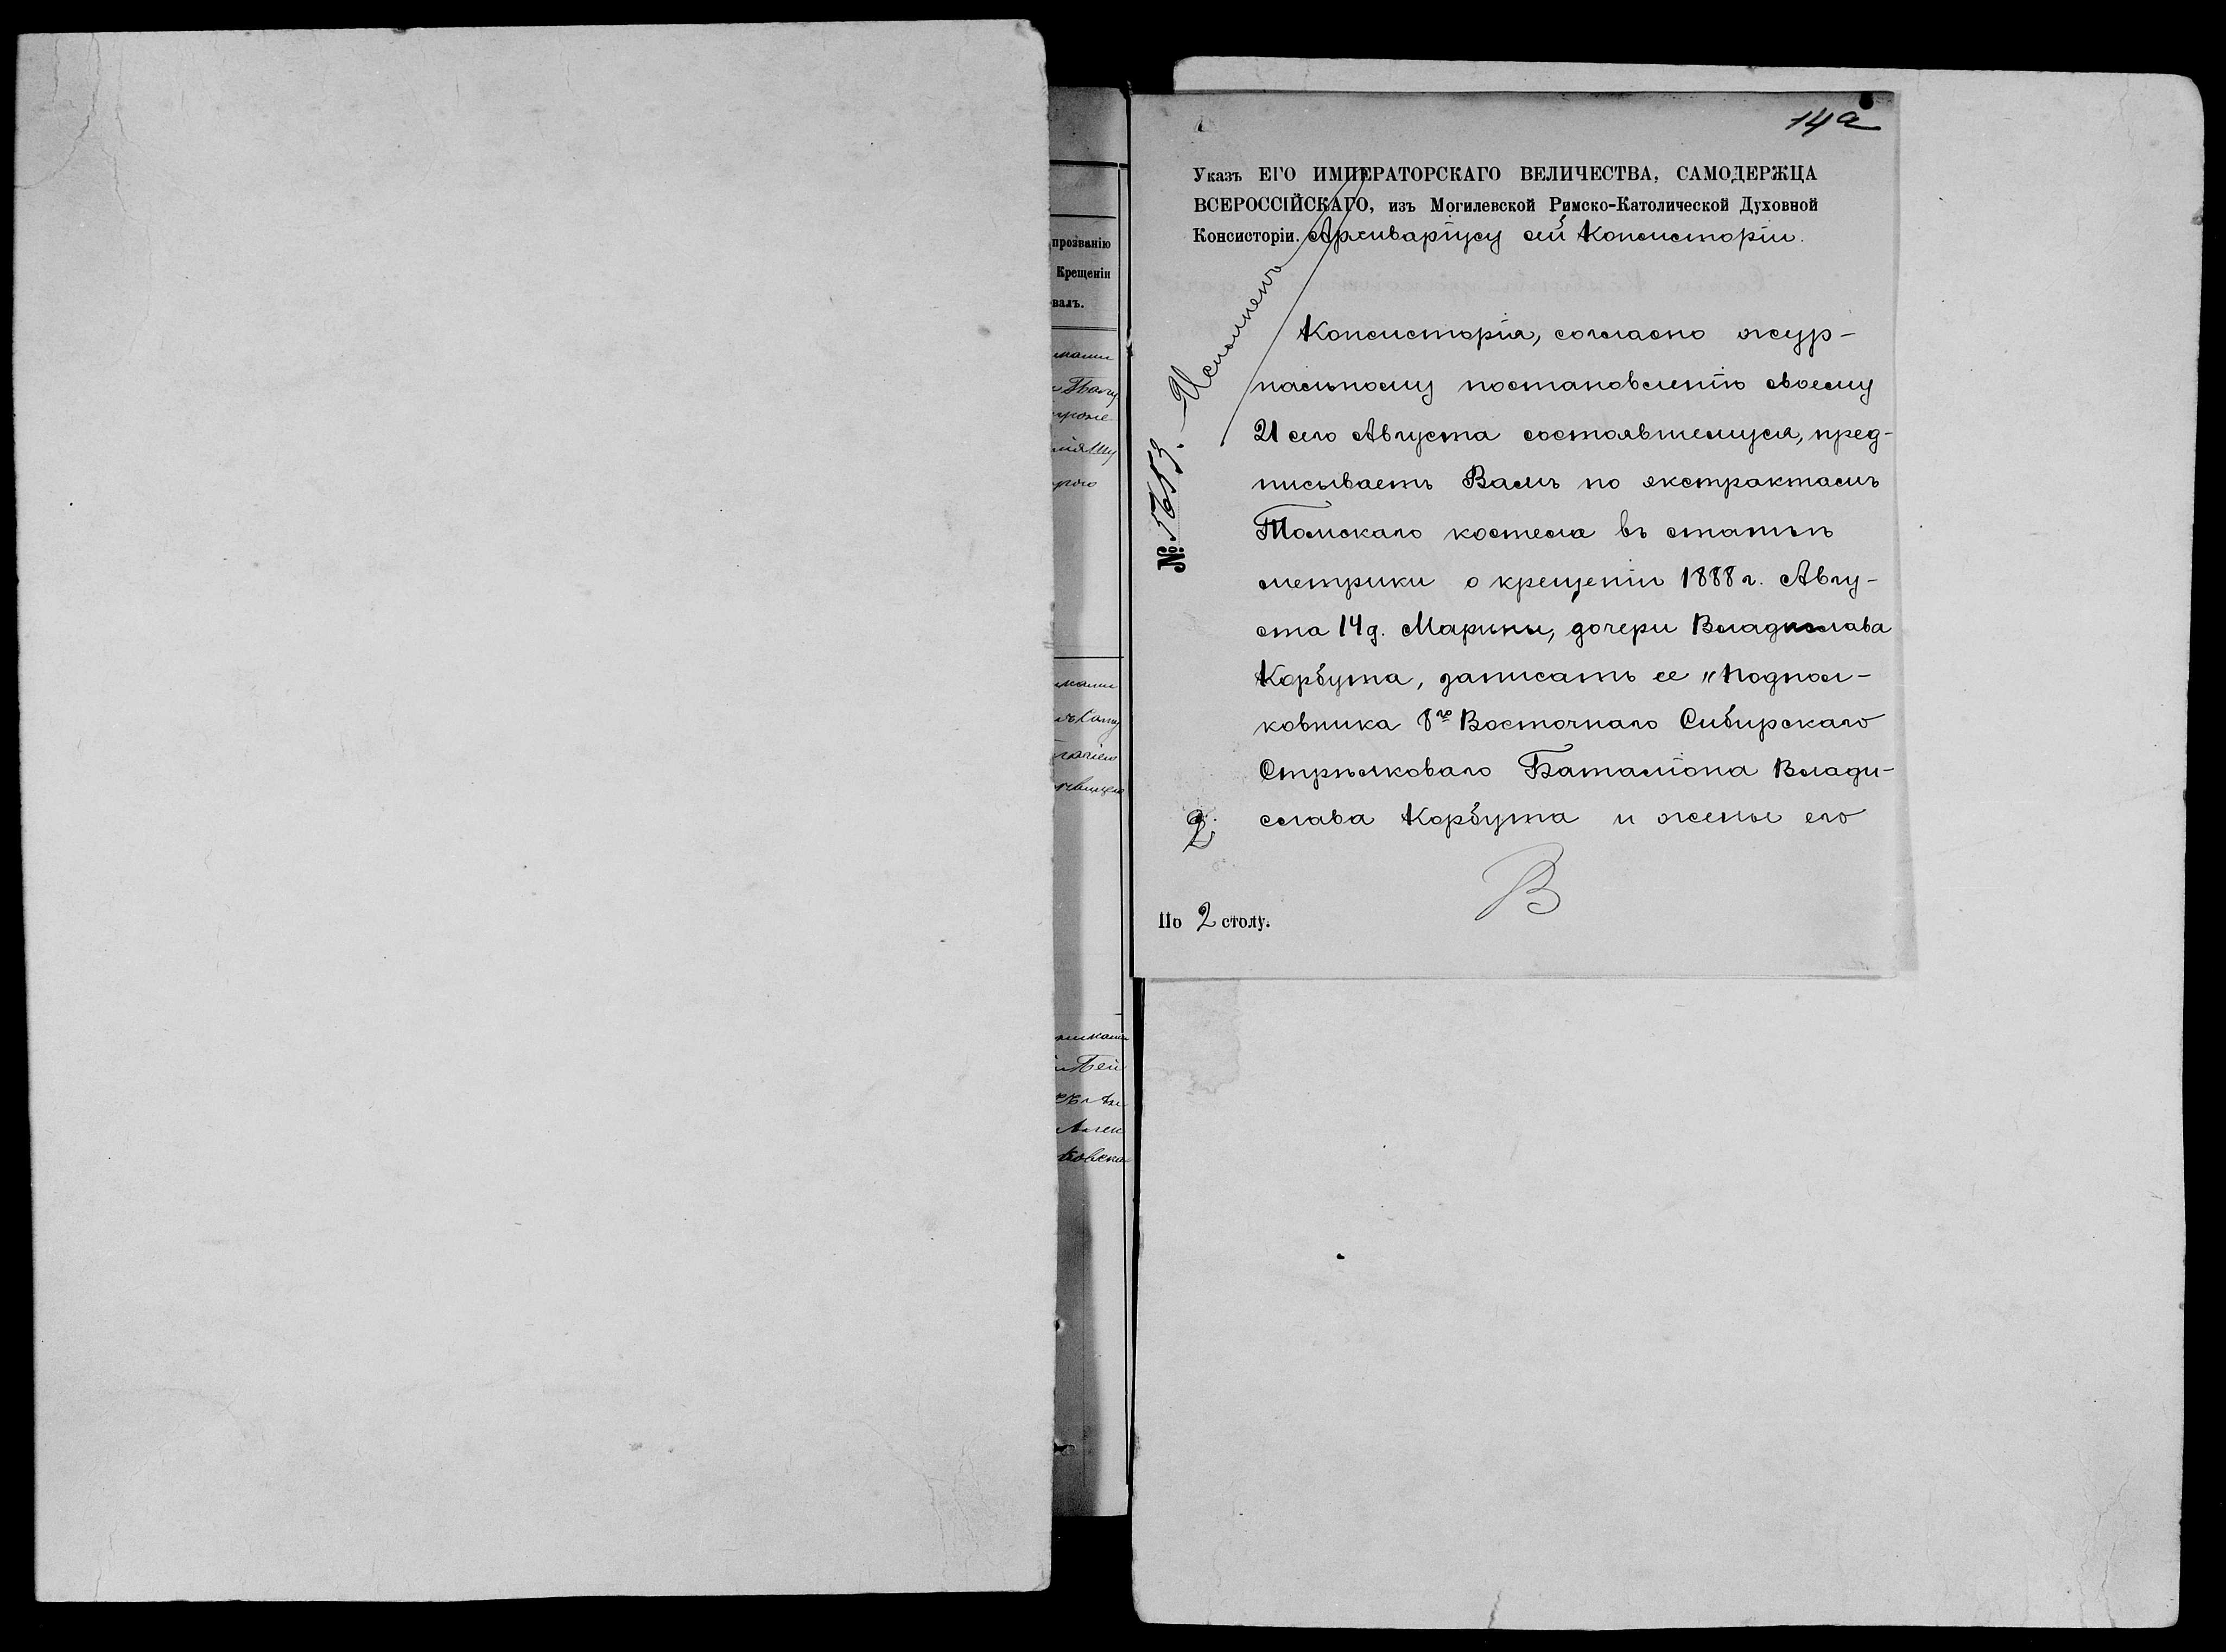 14а
Указъ ЕГО ИМПЕРАТОРСКАГО ВЕЛИЧЕСТВА, САМОДЕРЖЦА
ВСЕРОССІЙСКАГО, изъ Могилевской Римско-Католической Духовной
Консисторіи. Архиваріусу сей Консисторіи.
Исполненъ
№
Консисторія, согласно жур-
нальному постановленію своему
21 сего Августа состоявшемуся, пред-
писываетъ Вамъ по экстрактамъ
Томскаго костела въ статьѣ
метрики о крещеніи 1888 г. Авгу-
ста 14 д. Марины, дочери Владислава
Корбута, записать ее „Подпол-
ковника 8го Восточнаго Сибирскаго
Стрѣлковаго Баталіона Влади-
слава Корбута и жены его
По 2 столу.
прозванію
Крещеніи
валъ.